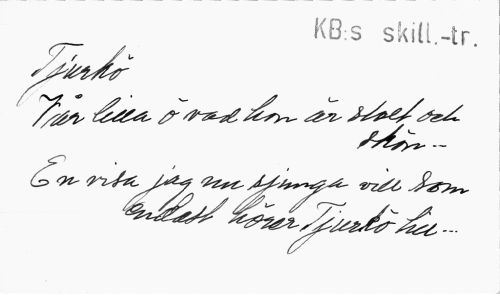 KB:s skill.-tr.
Tjurkö
Vår lilla ö vad hon är stolt och
skön...
En visa jag nu sjunga vill som
endast hörer Tjurkö till...